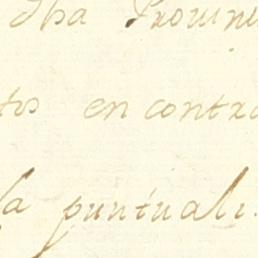 dha Provin
tos encontra
la puntuali.